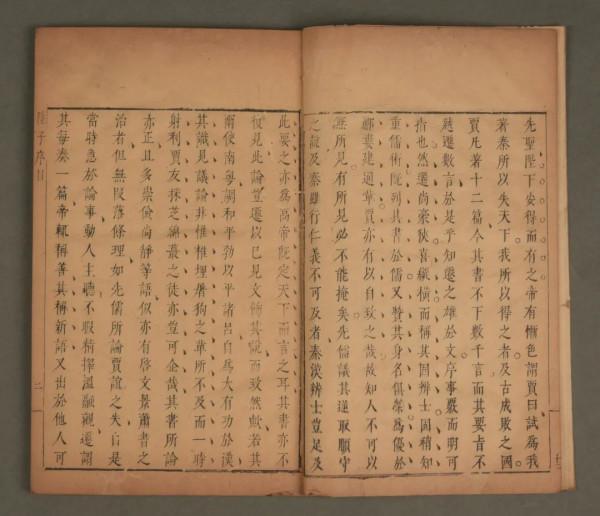 先聖陛下安得而有之帝有慚色謂賈曰試為我
著秦所以失天下我所以得之者及古成敗之國
賈凡著十二篇今其書不下數千言而其要旨不
越遷數言於是乎知遷之雄於文序事嚴而明可
指也然遷尚豪俠喜縱橫而稱其固辨士固稍知
重儒術既列其書於儒又贊其身名俱榮為優於
酈婁建通輩賈亦有以自致之哉故知人不可以
無所見有所見必不能掩矣先儒議其逆取順守
之說及秦雖行仁義不可及者秦後辨士豈足及
此要之亦為高帝既定天下而言之耳其書亦不
復見此論豈遷以己見文飾其說而致然歟若其
兩使南粵調和平勃以平諸呂自為大有功於漢
其識見議論非椎埋屠狗之輩所不及而一時
射利賈友採芝綿蕞之徒亦豈可企哉其書所論
亦正且多崇儉尚靜等語似亦有啓文景蕭曹之
治者但無段落條理如先儒所論賈誼之失自是
當時急於論事動人主聽不暇精擇溫融觀遷謂
其每奏一篇帝輒稱善其稱新語又出於他人可
陸子序目
二